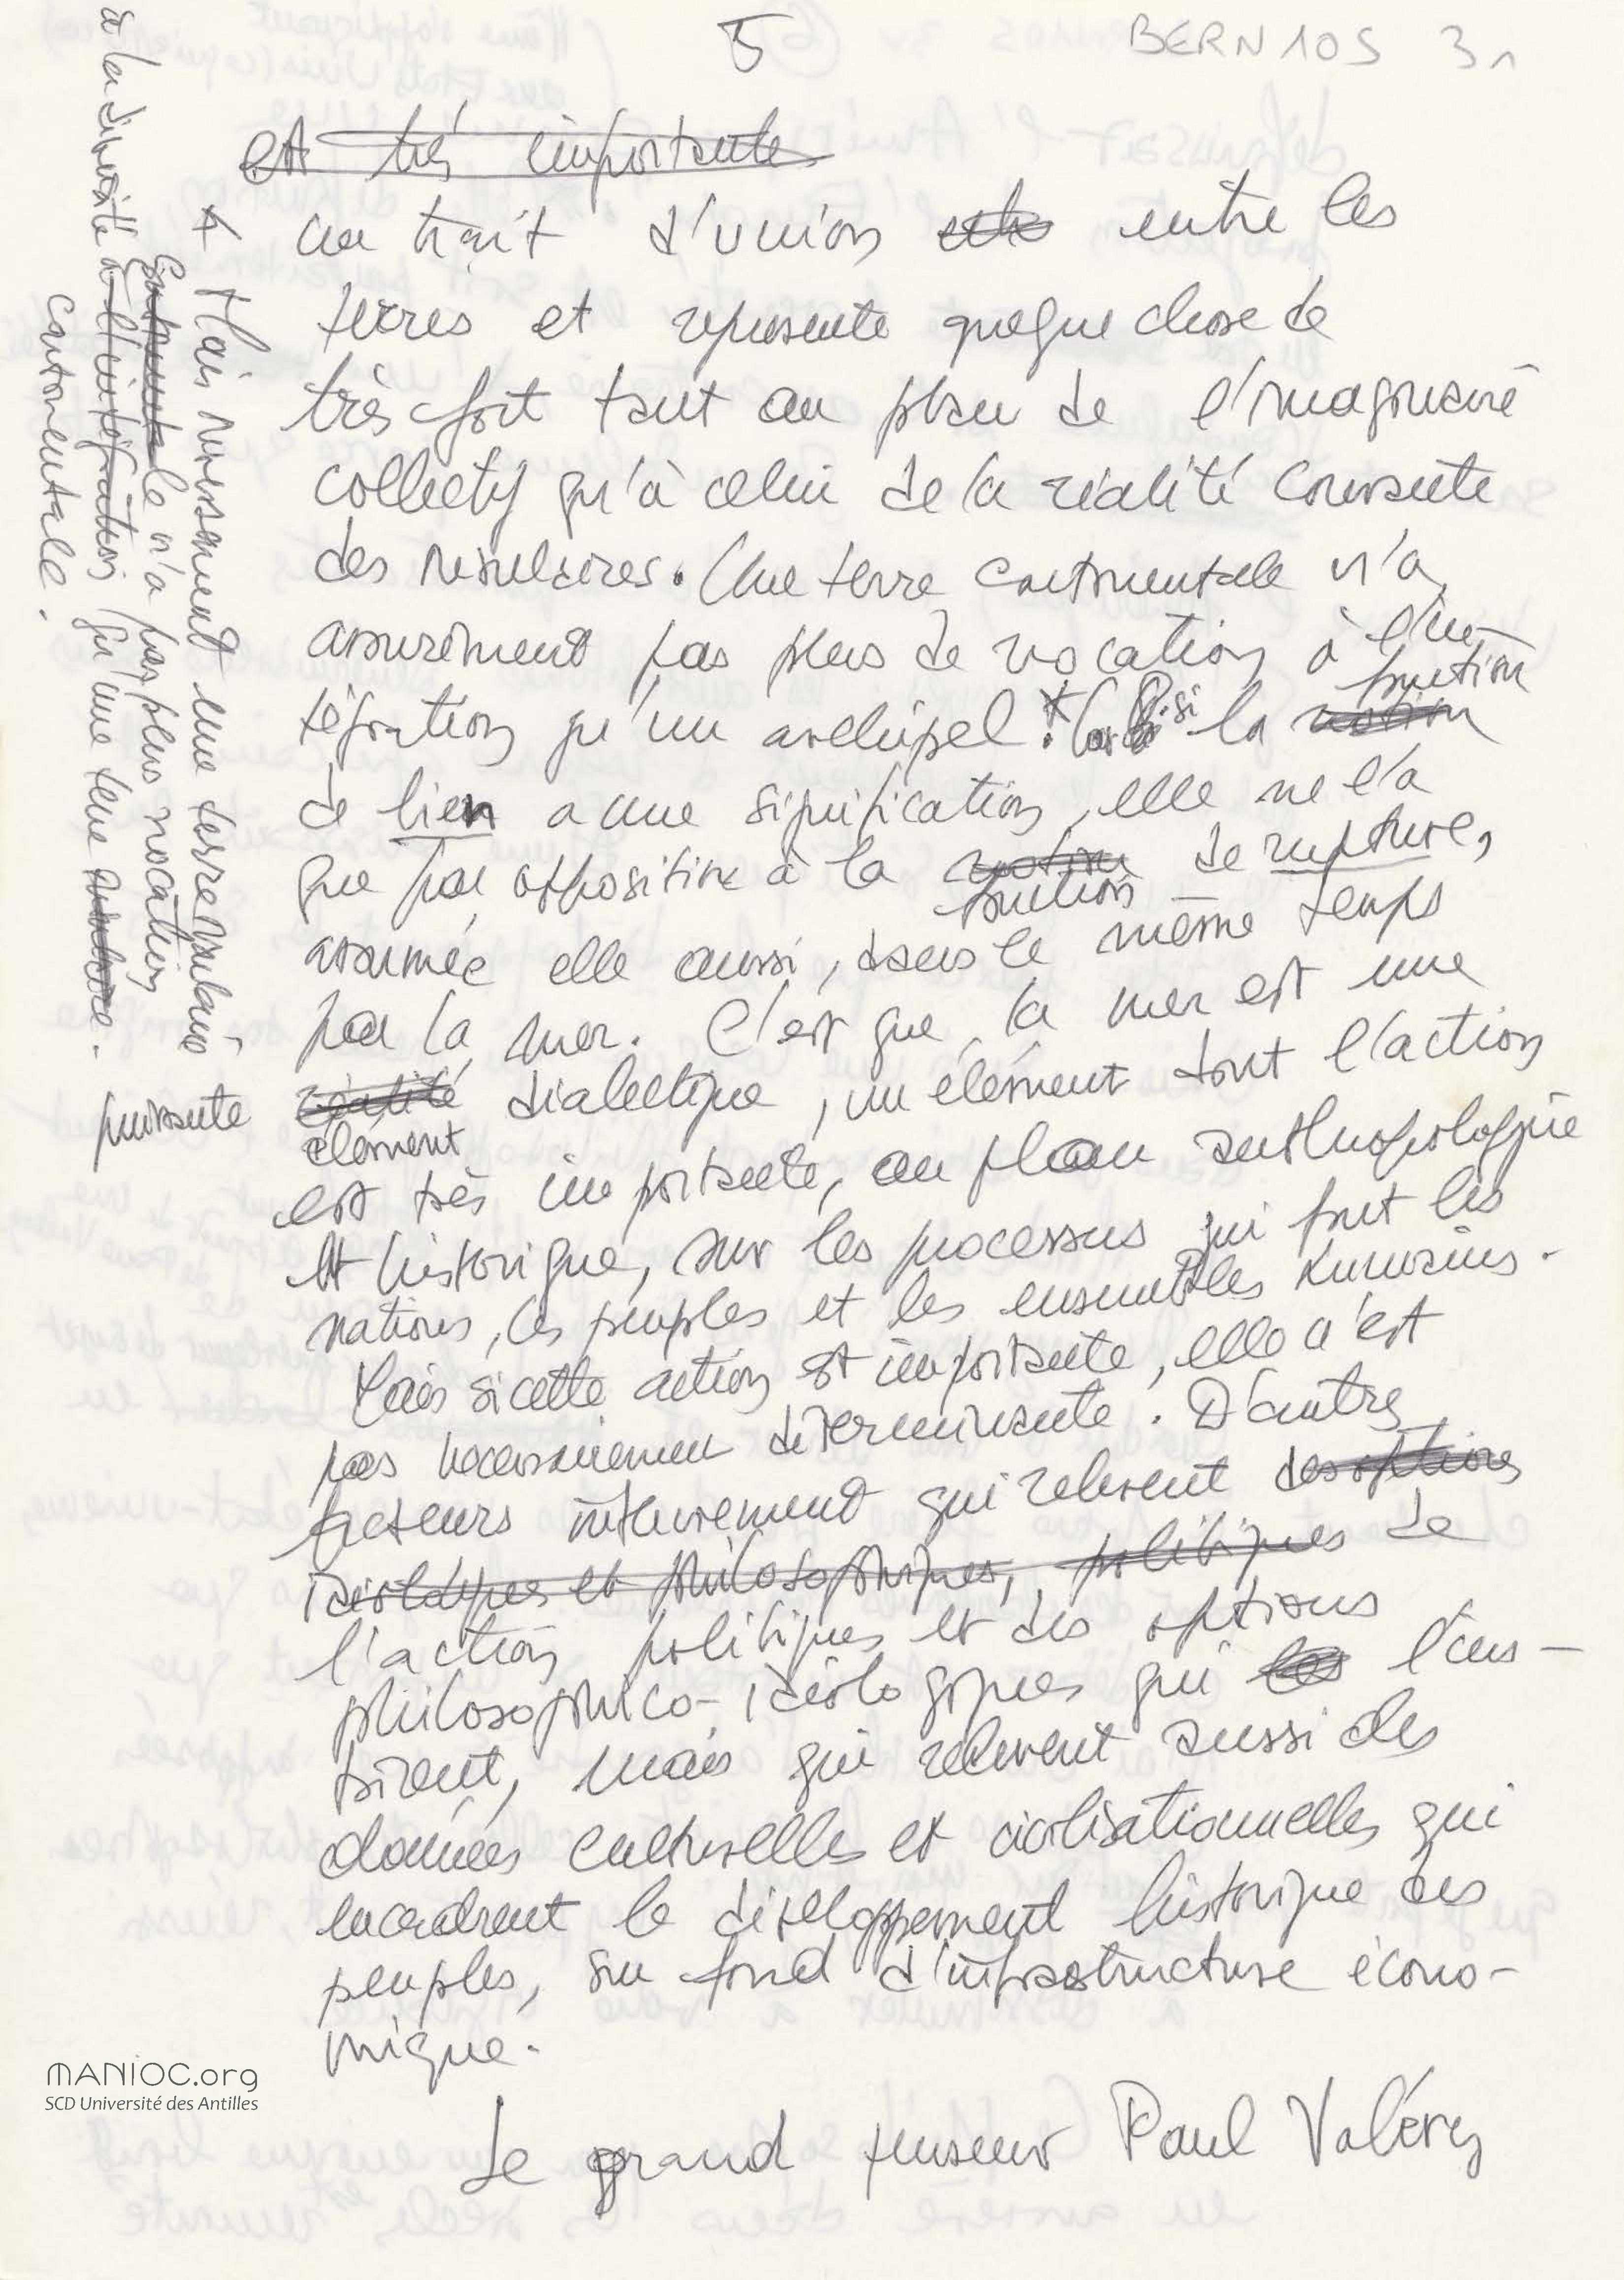 5
BERN105 31
est très importante
un trait d'union entre les
terres et représente quelque chose de
très fort tant au plan de l'imaginaire
collectif qu'à celui de la réalité courante
des insulaires. Une terre continentale n'a
assurément pas plus de vocation à l'in-
tégration qu'un archipel. * Car si la fonction
de lien a une signification, elle ne l'a
que par opposition à la fonction de rupture,
assumée elle aussi, dans le même temps
par la mer. C'est que la mer est une
puissante réalité dialectique, un élément dont l'action
élément
est très importante, au plan anthropologique
et historique, sur les processus qui font les
nations, les peuples et les ensembles humains.
Mais si cette action est importante, elle n'est
pas nécessairement déterminante. D'autres
facteurs interviennent qui relèvent des options
idéologiques et philosophiques, politiques de
l'action politiques et des options
philosophico-idéologiques qui l'ins-
pirent, mais qui relèvent aussi des
données culturelles et civilisationnelles qui
encadrent le développement historique des
peuples, sur fond d'infrastructure écono-
mique.
Le grand penseur Paul Valéry
* Mais inversement une terre insulaire
le n'a pas plus vocation
à la diversité à l'intégration qu'une terre
continentale.
MANIOC.org
SCD Université des Antilles